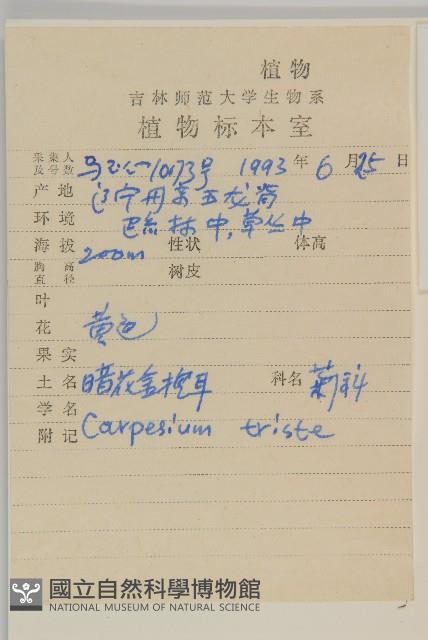 植物
吉林师范大学生物系
植物标本室
采集人及号数 10173号 1993年6月25日
产地 辽宁丹东五龙背
环境 林中,草丛中
海拔 200m 性状 体高
胸高直径 树皮
叶
花 黄色
果实
土名 暗花金挖耳 科名 菊科
学名
附记 Carpesium triste
國立自然科學博物館
NATIONAL MUSEUM OF NATURAL SCIENCE